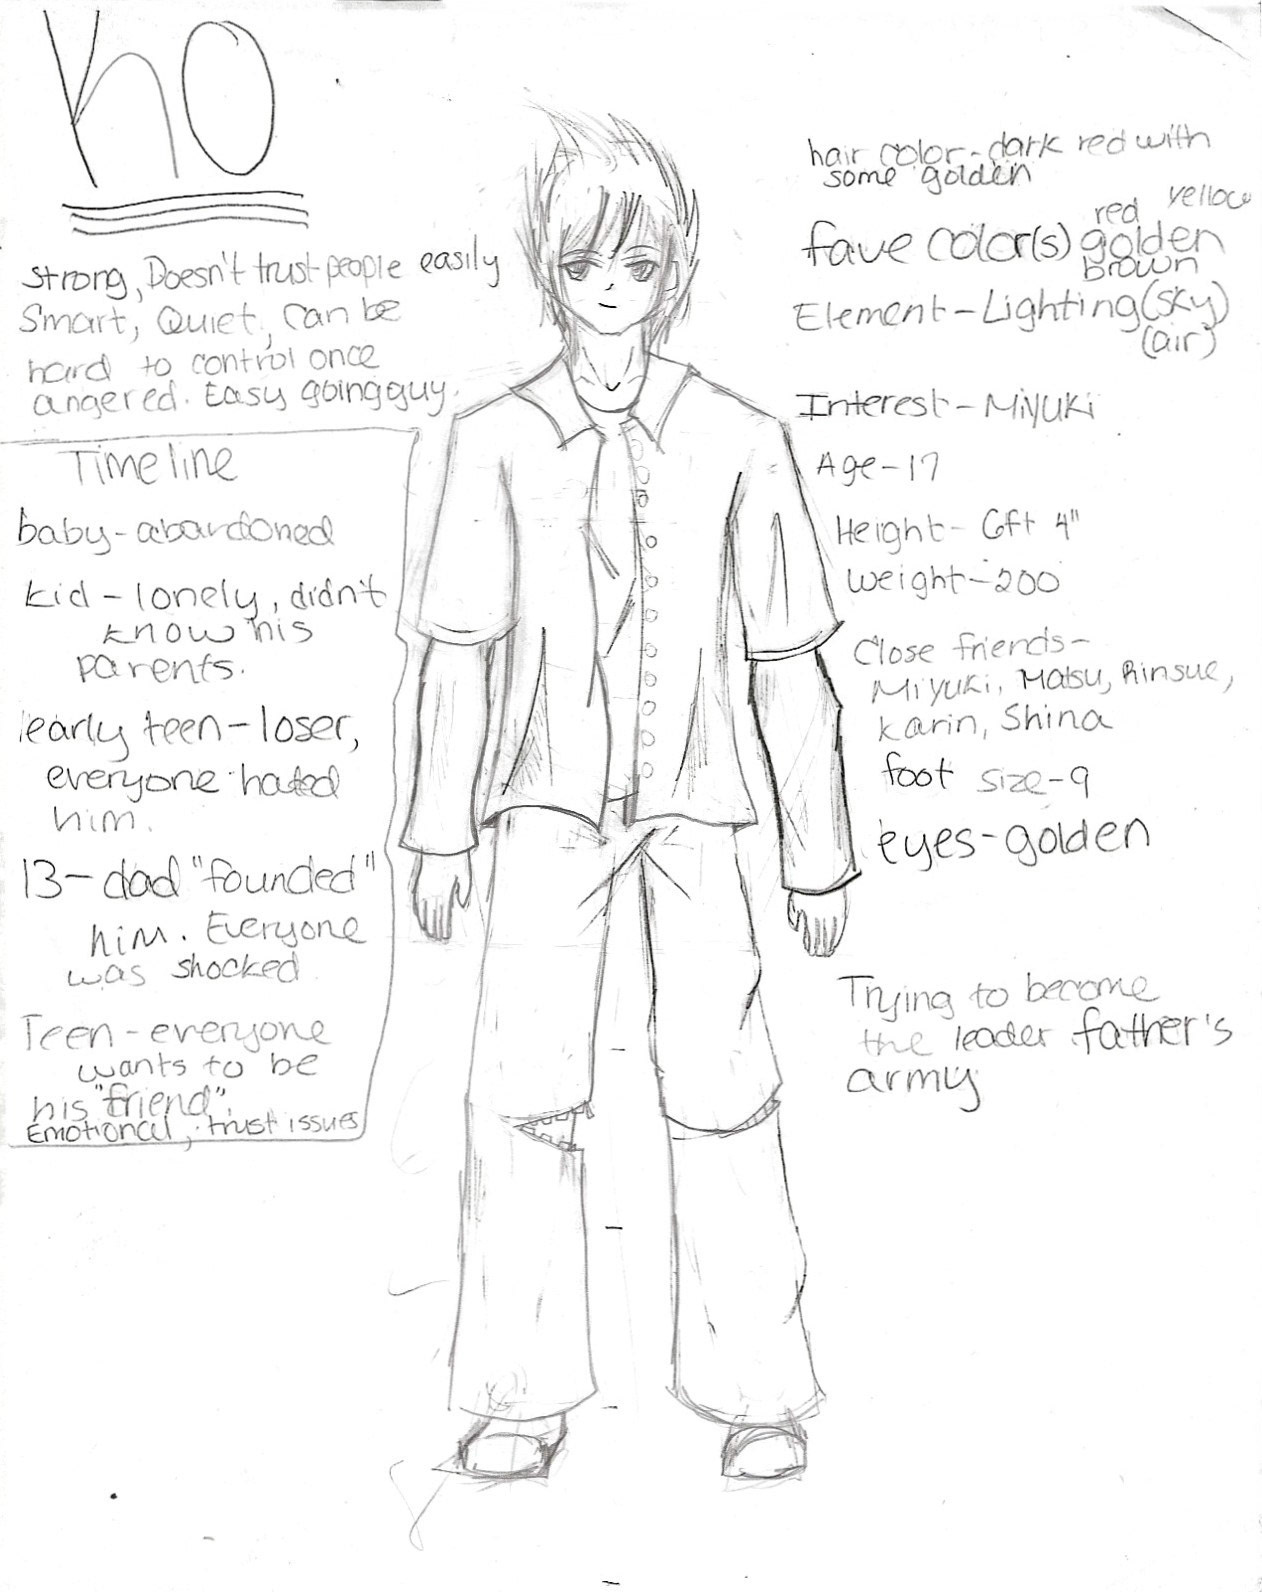 Ko
Strong, Doesn't trust people easily
Smart, Quiet, Can be
hard to control once
angered. Easy going guy.
Timeline
baby-abandoned
kid-lonely, didn't
know his
parents.
early teen-loser,
everyone hated
him.
13-dad "founded"
him. Everyone
was shocked
Teen-everyone
wants to be
his "friend".
Emotional, trust issues
hair color-dark red with
some golden
red yellow
fave color(s) golden
brown
Element-Lighting(sky)
(air)
Interest-Miyuki
Age-17
Height-6ft 4"
Weight-200
Close friends-
Miyuki, Matsu, Rinsue,
Karin, Shina
foot size-9
eyes-golden
Trying to become
the leader father's
army